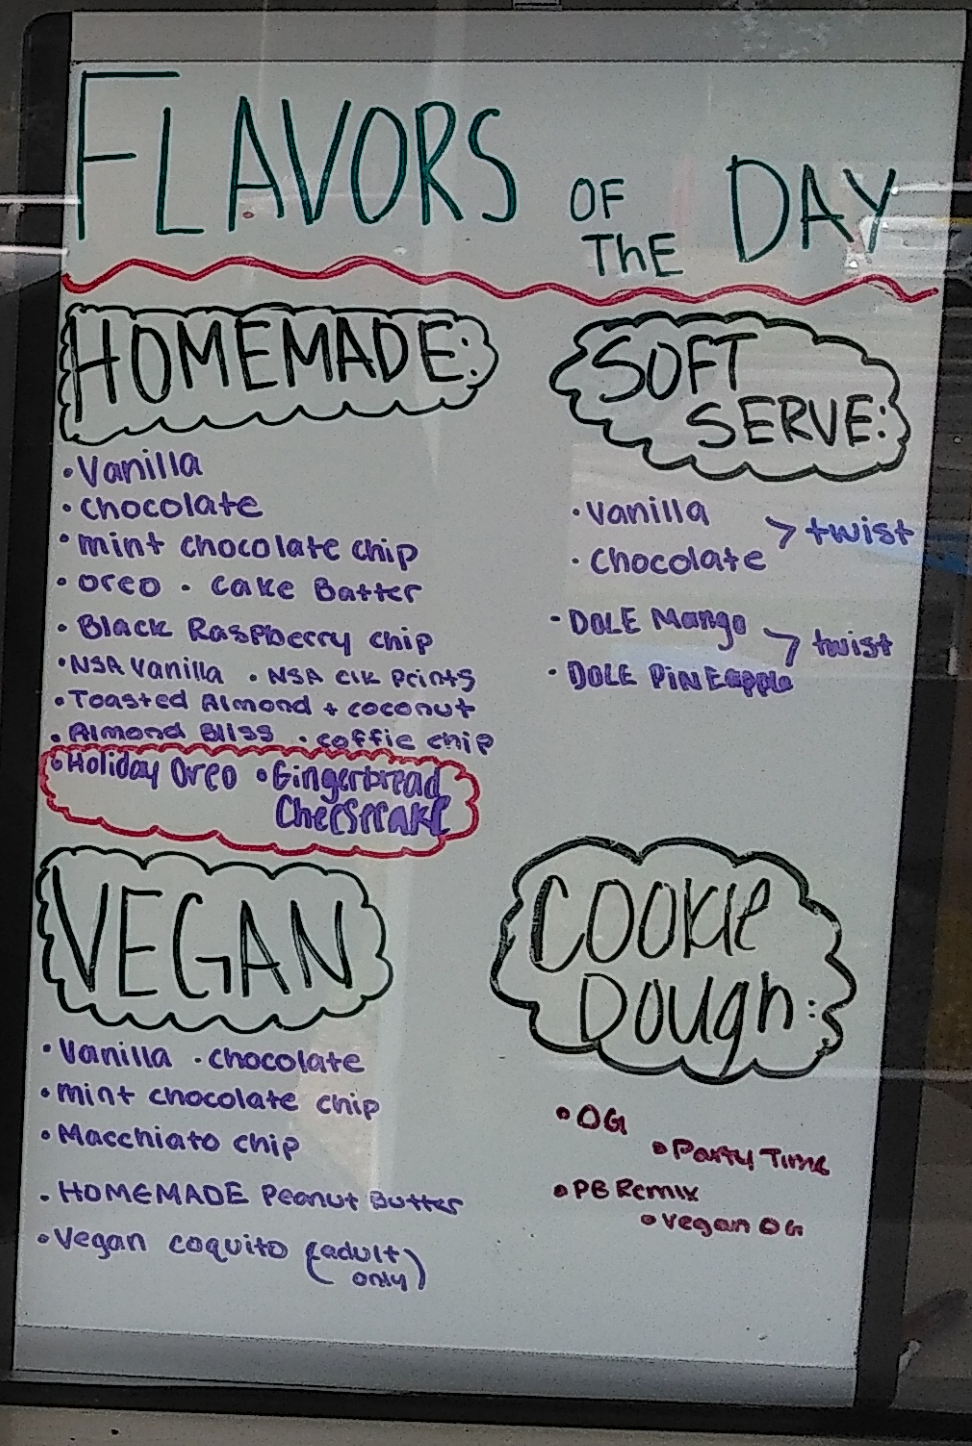 FLAVORS OF THE DAY
HOMEMADE:
• Vanilla
• Chocolate
• mint chocolate chip
• oreo • Cake Batter
• Black Raspberry chip
• NSA Vanilla • NSA Clk Prints
• Toasted Almond + coconut
• Almond Bliss • coffie chip
• Holiday Oreo • Gingerbread
Cheesecake
SOFT
SERVE:
• Vanilla
• Chocolate
> twist
• DOLE Mango
• DOLE PiNEapple
> twist
VEGAN
• Vanilla • chocolate
• mint chocolate chip
• Macchiato chip
• HOMEMADE Peanut Butter
• Vegan coquito (adult
only)
COOKIE
DOUGH:
• OG
• Party Time
• PB Remix
• Vegan OG